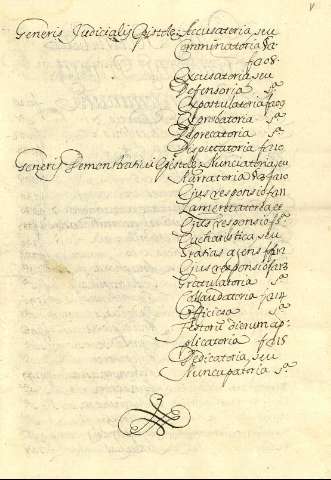 V
Generis Judicialis Epistolæ Accusatoria, seu
Comminatoria &a
fa208.
Excusatoria, seu
Defensoria sa
Expostulatoria fa209
Exprobatoria sa
Deprecatoria sa
Disputatoria fa210
Generis Demonstrativi Epistolæ Nunciatoria, seu
Narratoria &a fa210
Ejus responsio fa211
Lamentatoria, et
Ejus responsio fsa
Eucharistica, seu
Gratias agens fa212
Ejus responsio fa213
Gratulatoria sa
Collaudatoria fa214
Officiosa sa
Festorũ dierum ap-
plicatoria fa215
Dedicatoria, seu
Nuncupatoria sa